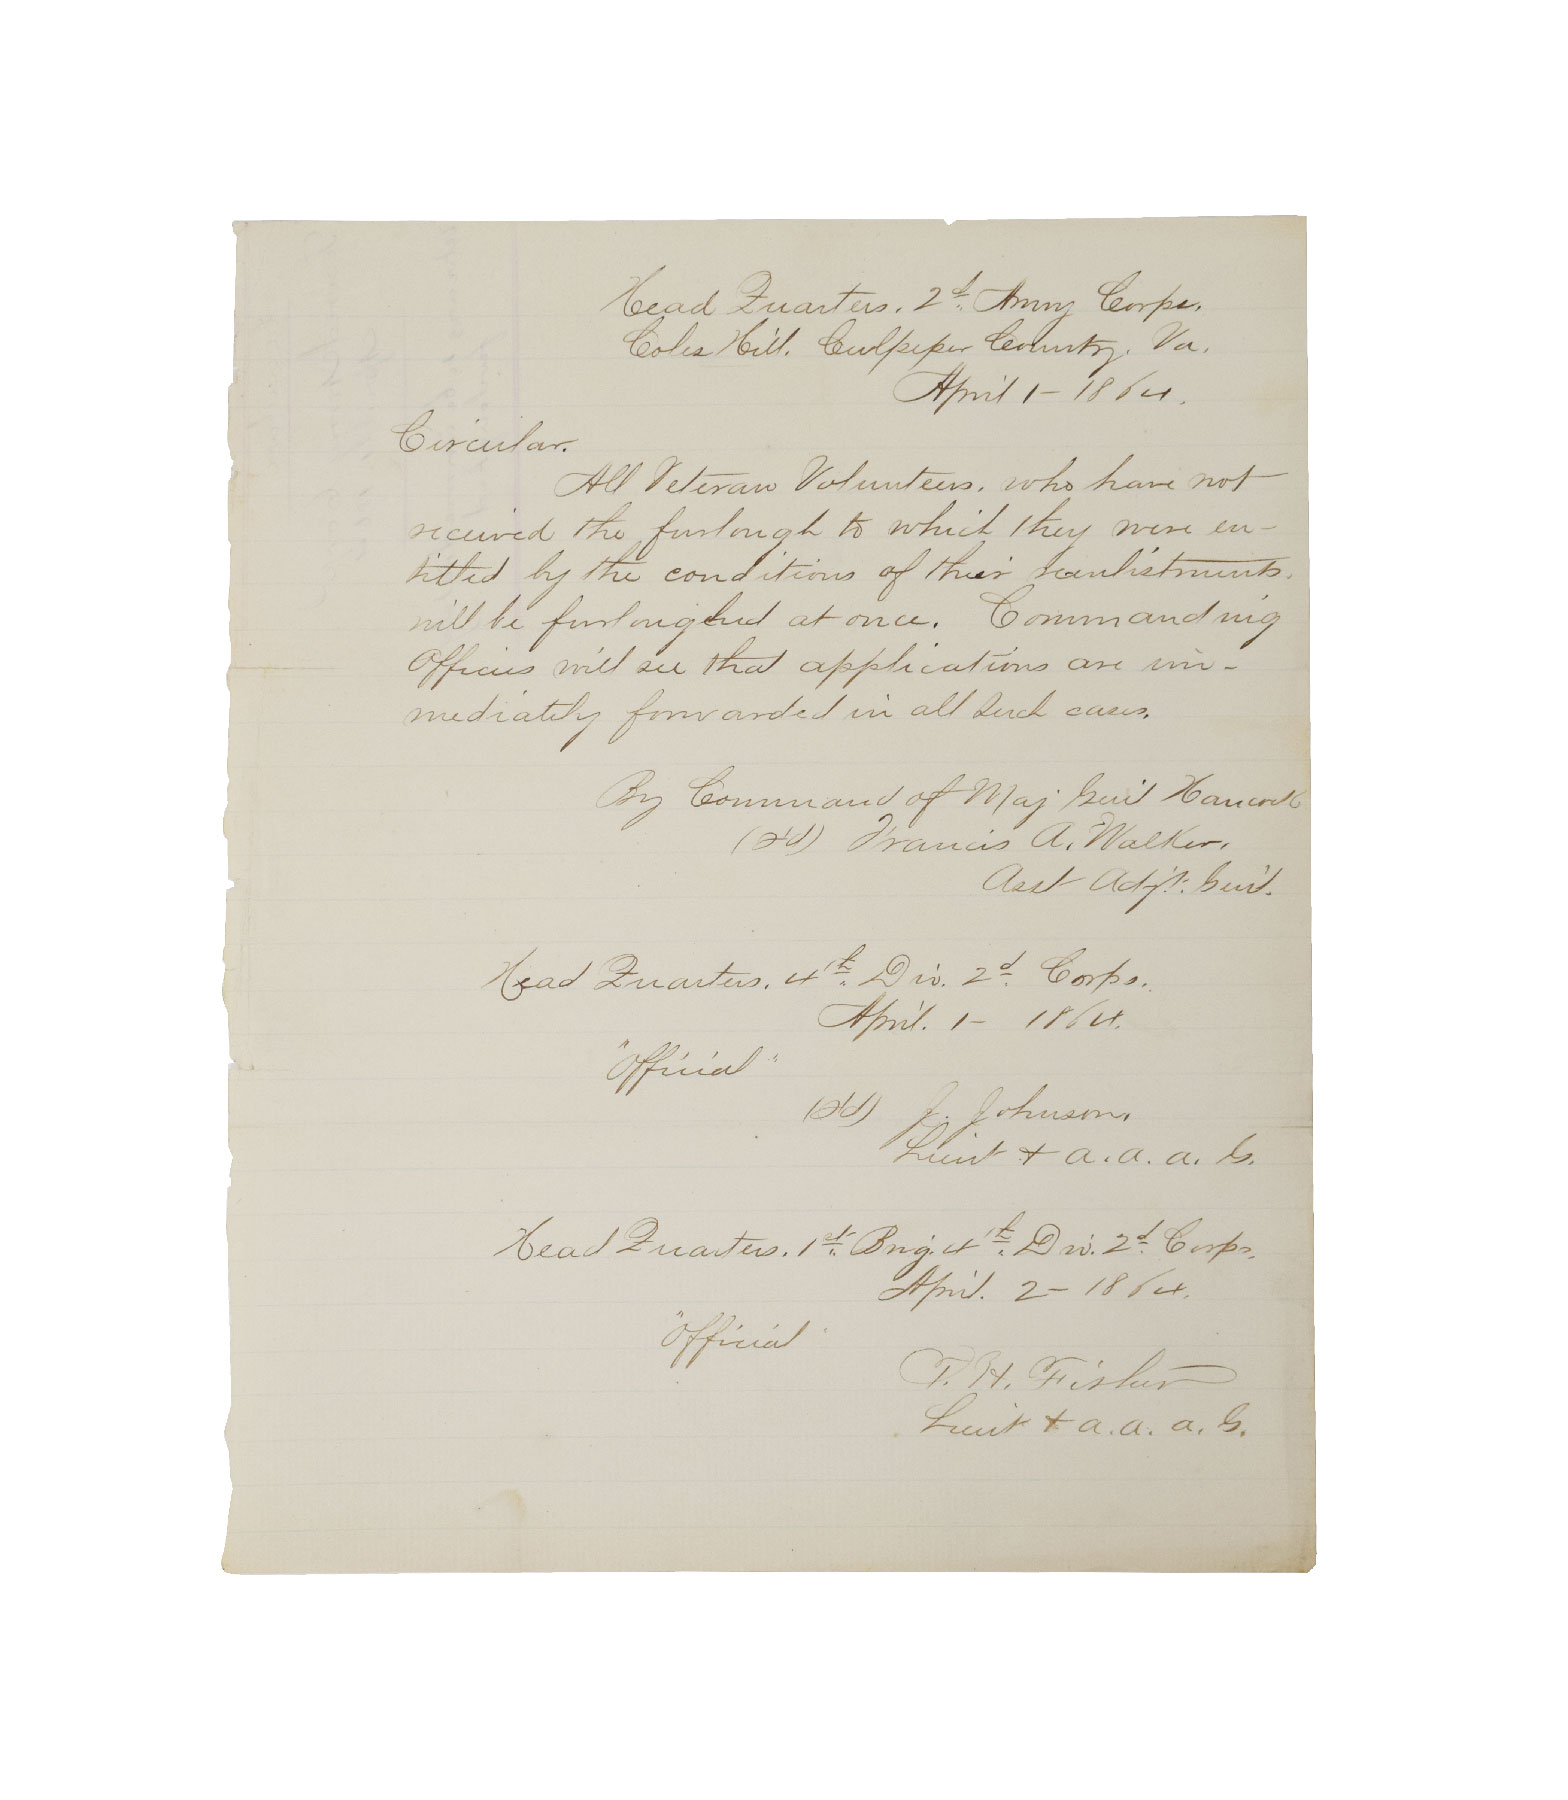 Head Quarters. 2d. Army Corps.
Coles Hill. Culpeper County. Va.
April 1 - 1864.
Circular.
All Veteran Volunteers. who have not
received the furlough to which they were en-
titled by the conditions of their reenlistments.
will be furloughed at once. Commanding
Officers will see that applications are im-
mediately forwarded in all such cases.
By Command of Maj Genl Hancock
(Sd) Francis A. Walker.
Asst Adjt. Genl.
Head Quarters. 4th. Div. 2d. Corps.
April. 1 - 1864.
"Official"
(Sd) J. Johnson.
Lieut & a. a. a. G.
Head Quarters. 1st. Brig. 4th. Div. 2d. Corps.
April. 2 - 1864.
"Official"
T. H. Fisher
Lieut & a. a. a. G.